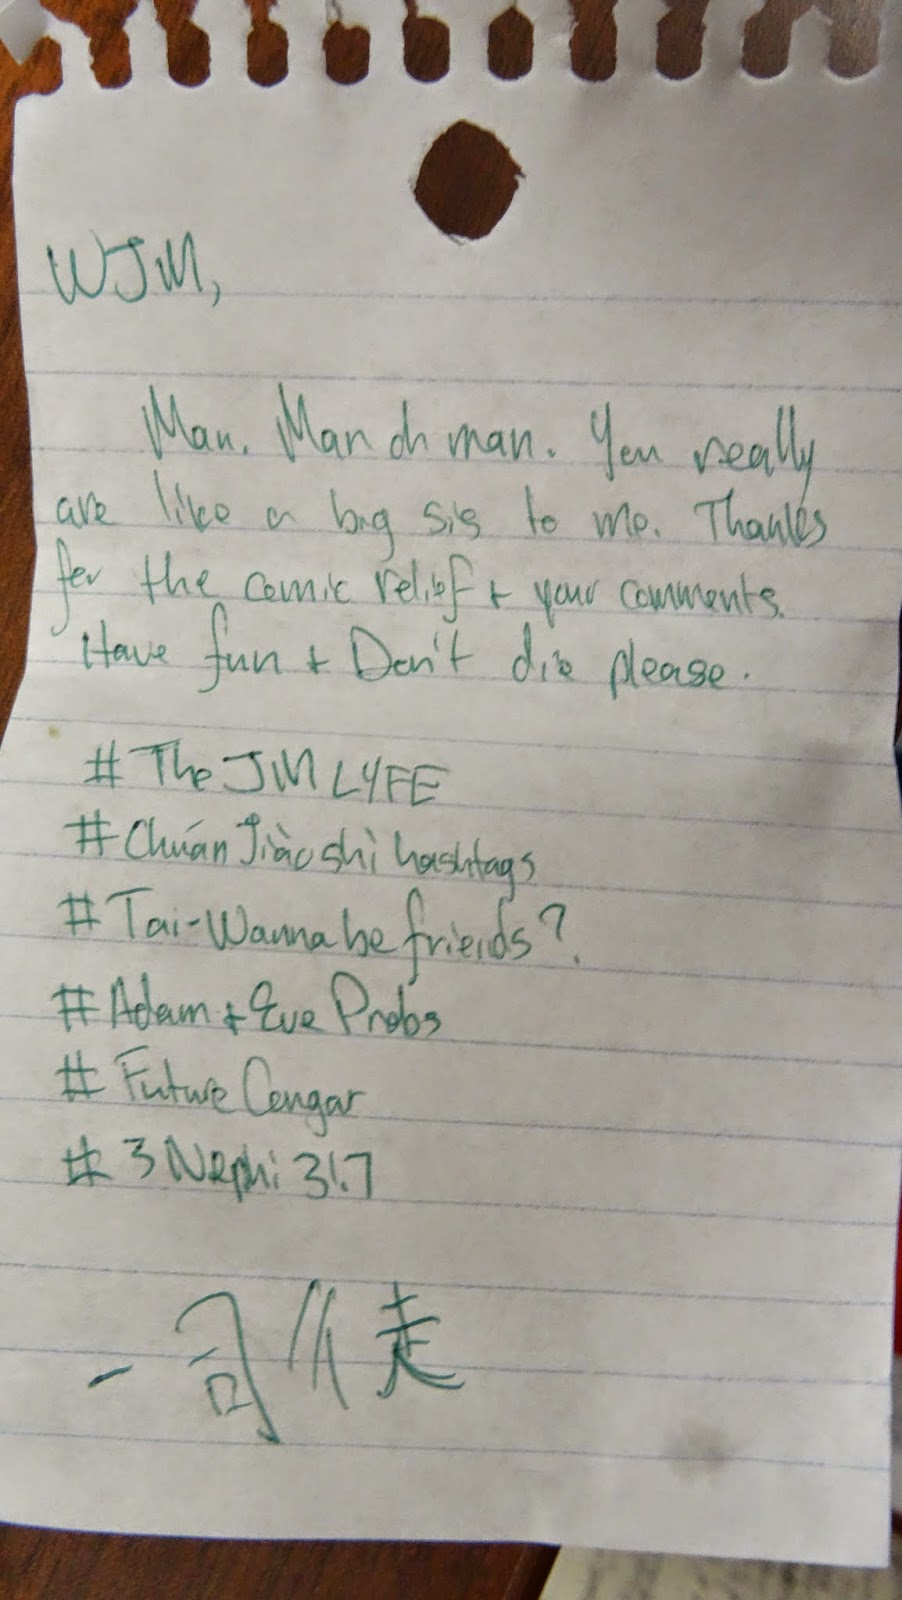 WJM,
Man. Man oh man. You really
are like a big sis to me. Thanks
for the comic relief + your comments.
Have fun + Don't die please.
#The JM LYFE
#Chuán Jiào shi hashtags
#Tai-Wanna be friends?
#Adam + Eve Probs
#Future Cougar
#3 Nephi 31:7
- 司